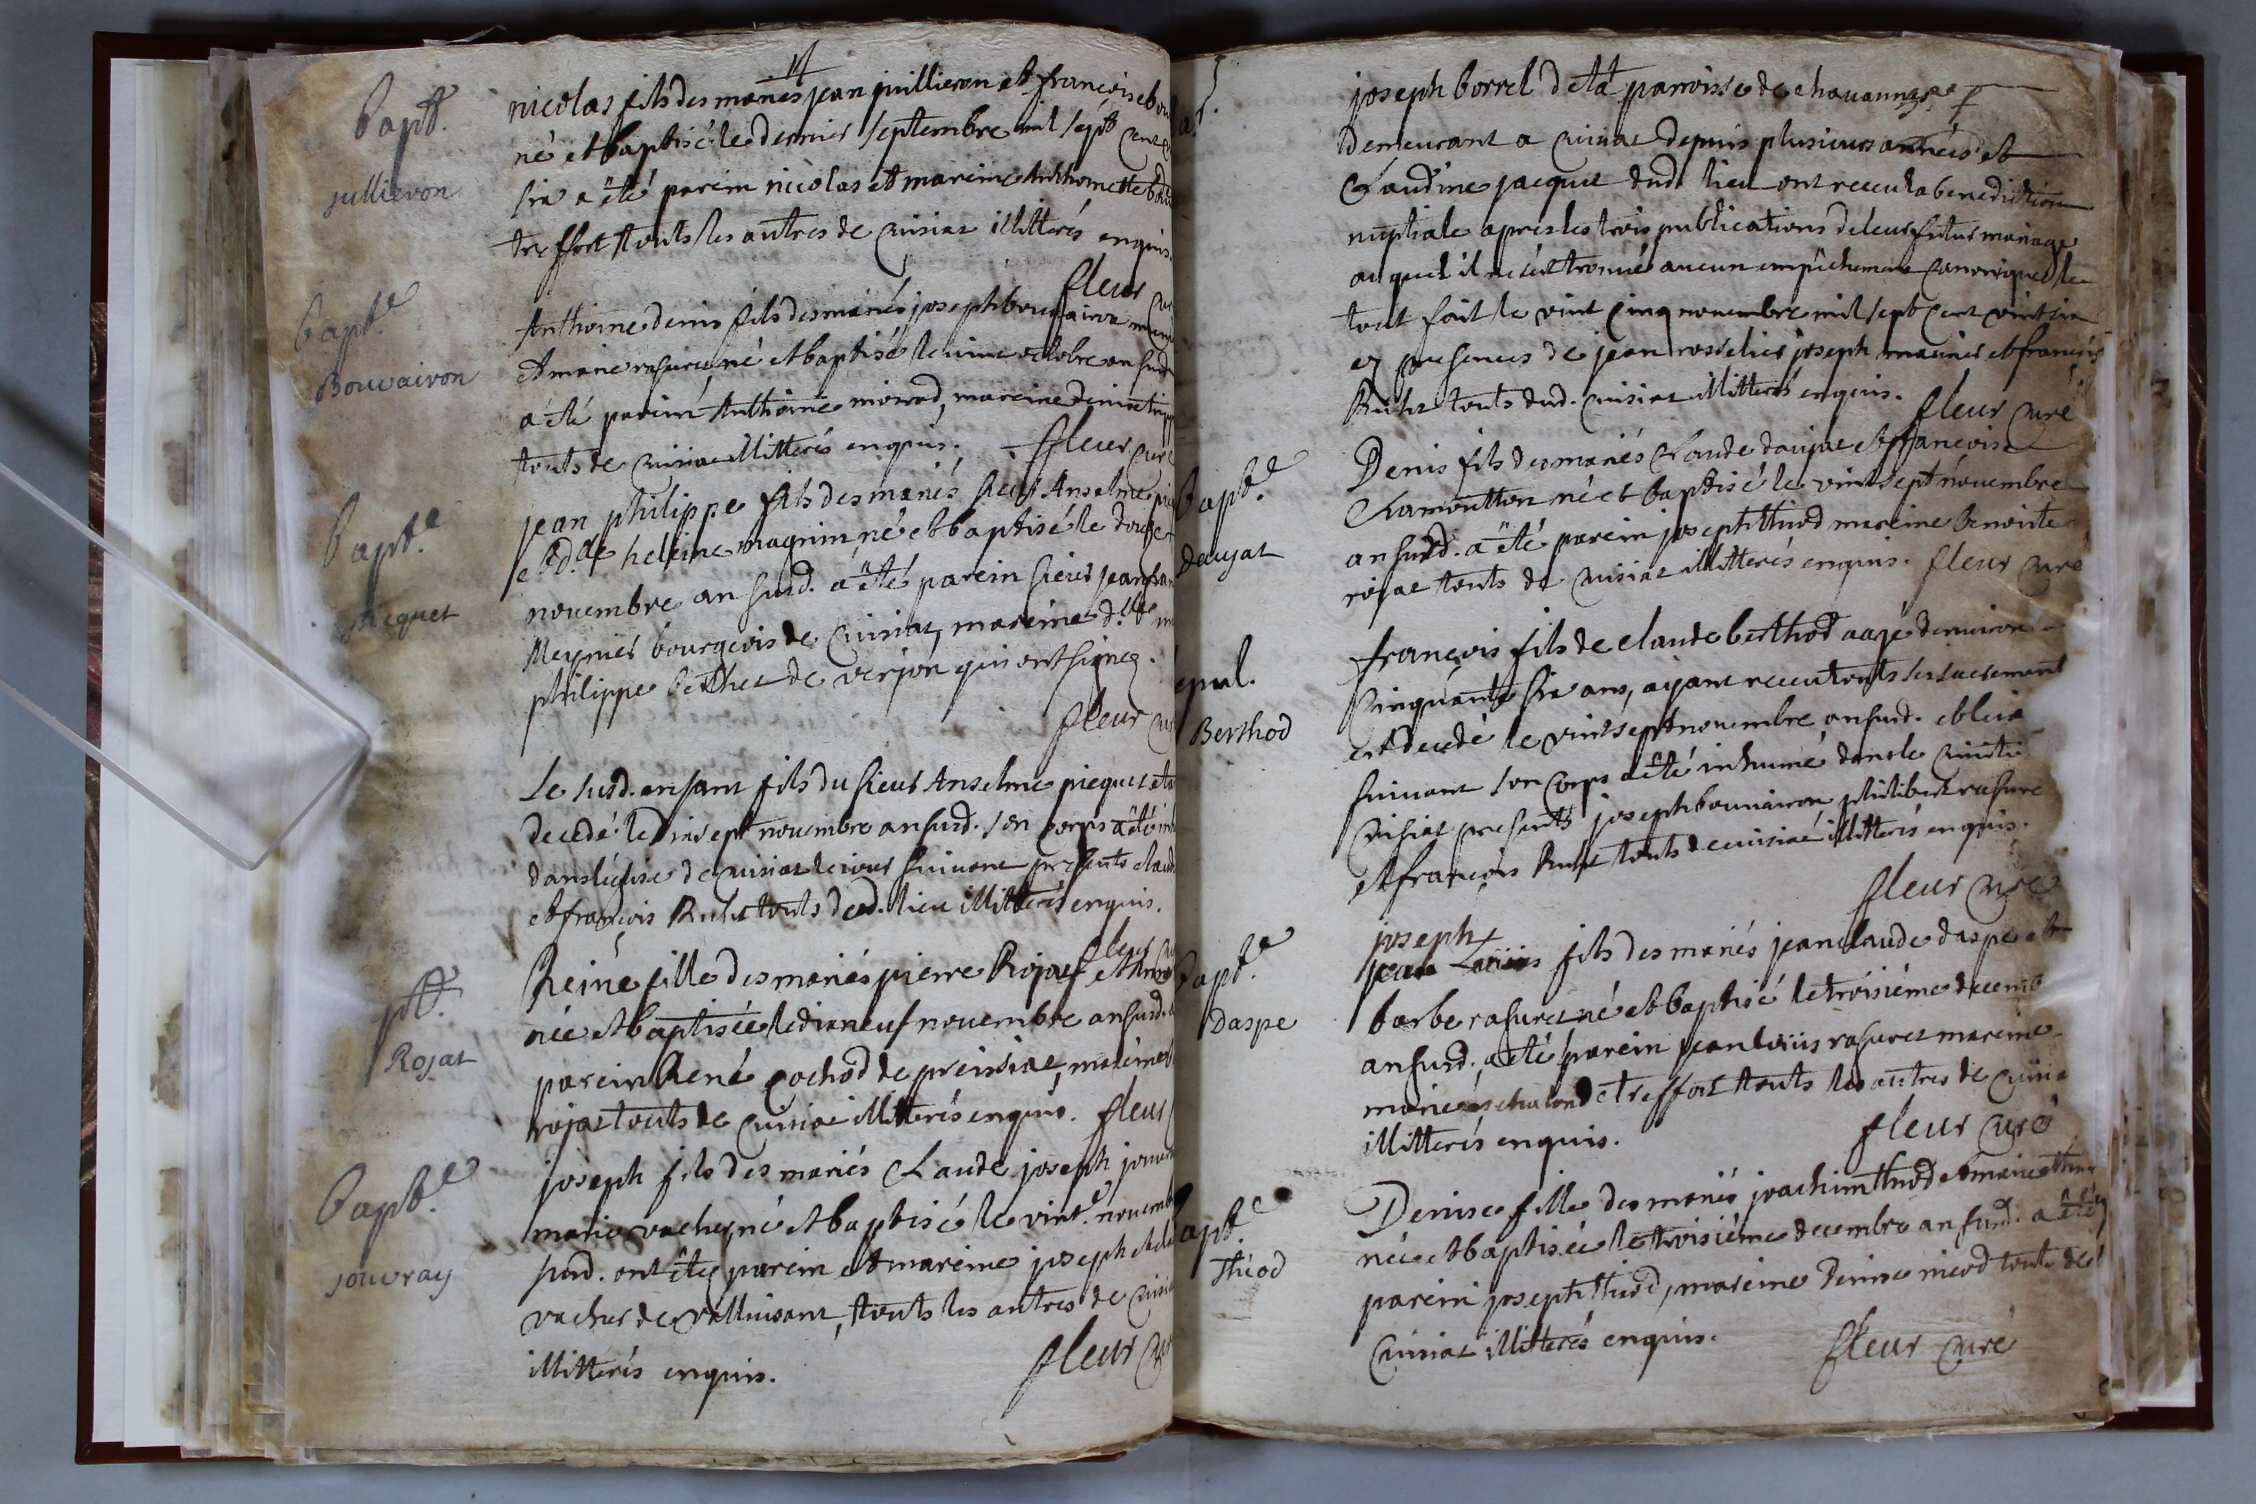 14
Bapt.
jullieron
nicolas fils des mariés jean jullieron et françoise
né et baptisé le dernier septembre mil sept cent
six a été parein nicolas et mareine Anthoinette
treffort touts les autres de cuisiat illitterés enquis.
fleur
Bapt.e
Bouvairon
Anthoine denis fils des mariés joseph bouvairon
et marie rasuret, né et baptisé le octobre an susd.
a été parein Anthoine miord, mareine denise
touts de cuisiat illitterés enquis. fleur curé
Bapt.e
piequet
jean philippe fils des mariés sieur Anselme
et d.lle heleine magnin, né et baptisé le douze
novembre an susd. a été parein sieur jean
Meynier bourgeois de cuisiat, mareine d.lle
philippe berthet de verjon qui ont signez.
fleur
Le susd. enfant fils du sieur Anselme piequet
decedé le dixsept novembre an susd. son corps a été
dans l'église de cuisiat le jour suivant presents claude
et françois Buhet touts dud. lieu illitterés enquis.
fleur
pt.
Rojat
Reine fille des mariés pierre Rojat et
née et baptisée le dixneuf novembre an susd.
parein René cochod de preissiat, mareine
rojat touts de cuisiat illitterés enquis. fleur
Bapt.e
jouvray
joseph fils des mariés Claude joseph
marie vacher, né et baptisé le vint.e novembre
susd. ont étés parein et mareine joseph et
vacher de valluisant, touts les autres de
illitterés enquis. fleur
joseph borrel de la parroisse de chavannes
demeurant a cuisiat depuis plusieurs années et
Claudine jacquet dud. lieu ont receu la benediction
nuptiale apres les trois publications de leur futur mariage
auquel il ne s'est trouvé aucun empêchement canonique le
tout fait le vint cinq novembre mil sept cent vint six
ez presences de jean rosselier joseph marinet et françois
Buhet touts dud. cuisiat illitterés enquis. fleur curé
Bapt.e
daujat
Denis fils des mariés Claude daujat et françoise
Chamoutton né et baptisé le vint sept novembre
an susd. a été parein joseph thiod mareine benoite
rojat touts de cuisiat illitterés enquis. fleur curé
epul.
Berthod
françois fils de claude berthod aagé d'environ
cinquante six ans, ayant receu touts ses sacrement
est decedé le vint sept novembre an susd. et le
suivant son corps a été inhumé dans le
cuisiat presents joseph bouvairon philibert rasuret
et françois Buhet touts de cuisiat illitterés enquis.
fleur curé
Bapt.e
Daspe
joseph
jean fils des mariés jean claude daspe et
barbe rasuret né et baptisé le troisième decemb
an susd. a été parein jean louis rasuret mareine
marie chalon de treffort touts les autres de
illitterés enquis. fleur curé
apt.e
Thiod
Denise fille des mariés joachim thiod et marie
née et baptisée le troisième decembre an susd. a été
parein joseph thiod, mareine denise miod touts de
cuisiat illitterés enquis. fleur curé